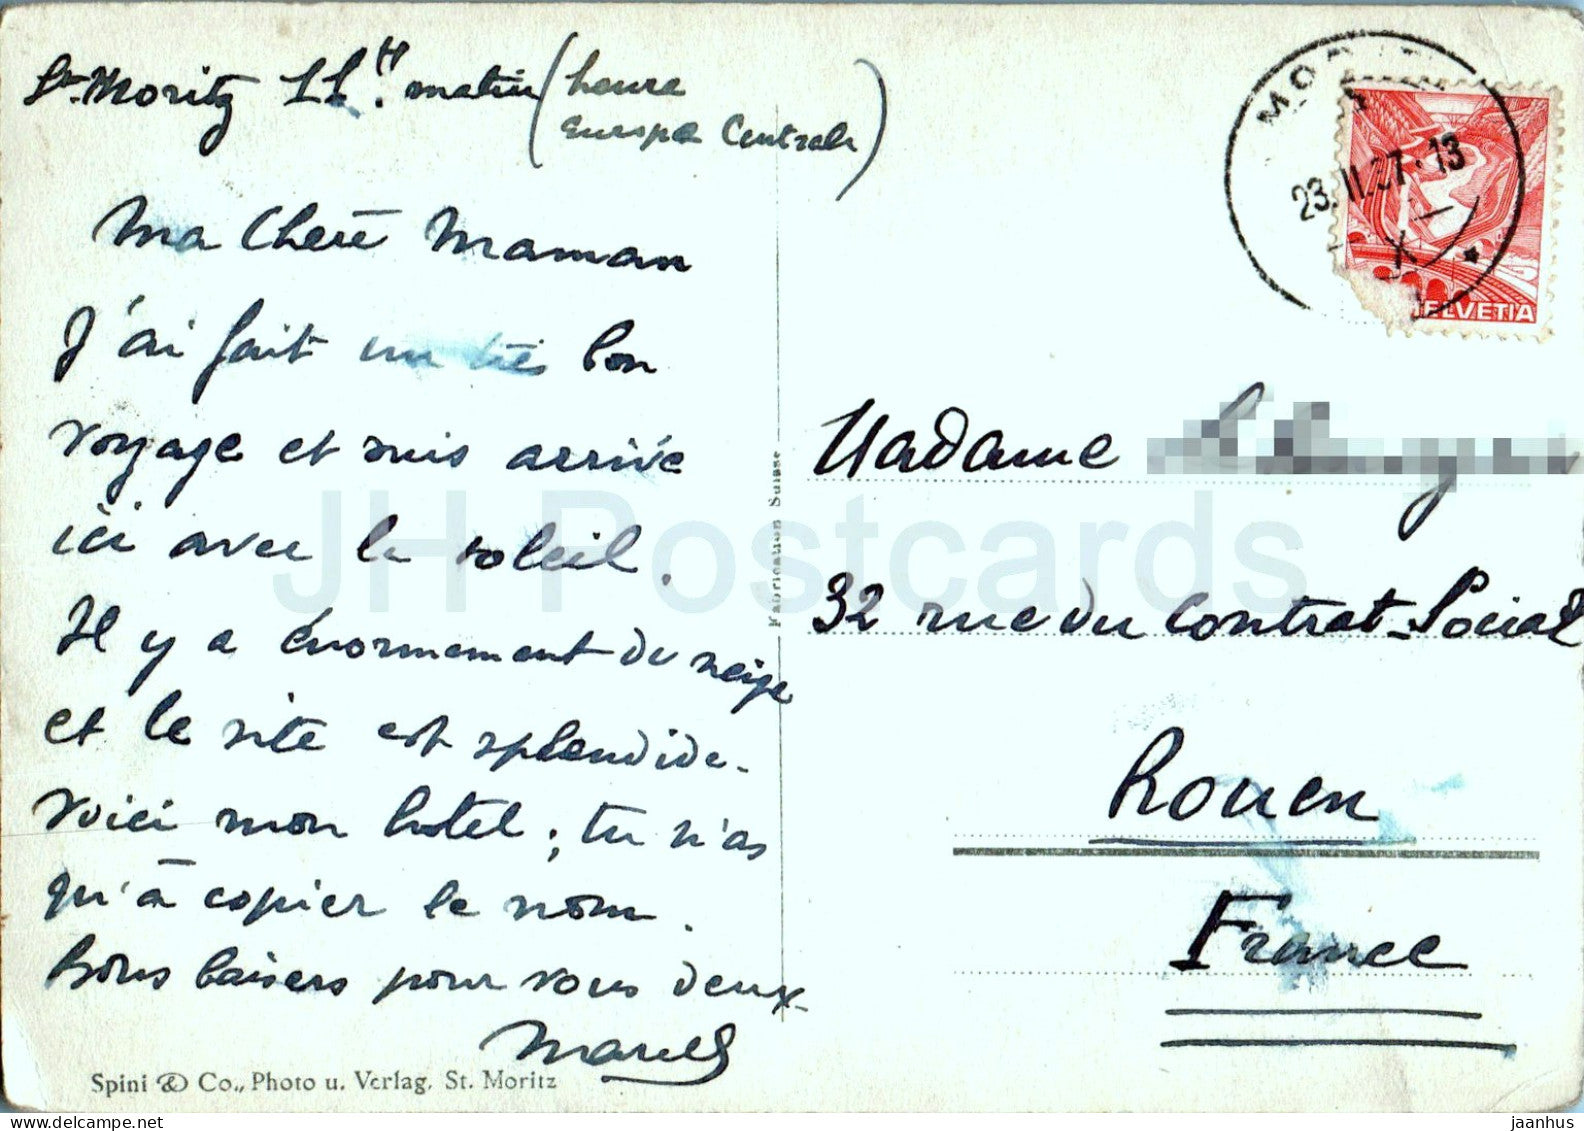 St-Moritz 11H. matin (heure
Europe Centrale)
Ma Chère Maman
J'ai fait un très bon
voyage et suis arrivé
ici avec le soleil.
Il y a énormément de neige
et le site est splendide.
Voici mon hotel ; tu n'as
qu'à copier le nom.
Bons baisers pour vous deux
Marcel
Spini & Co., Photo u. Verlag, St. Moritz
Fabrication Suisse
23.II.37.-13
X
HELVETIA
Madame
32 rue du Contrat-Social
Rouen
France
JH Postcards
jaanhus